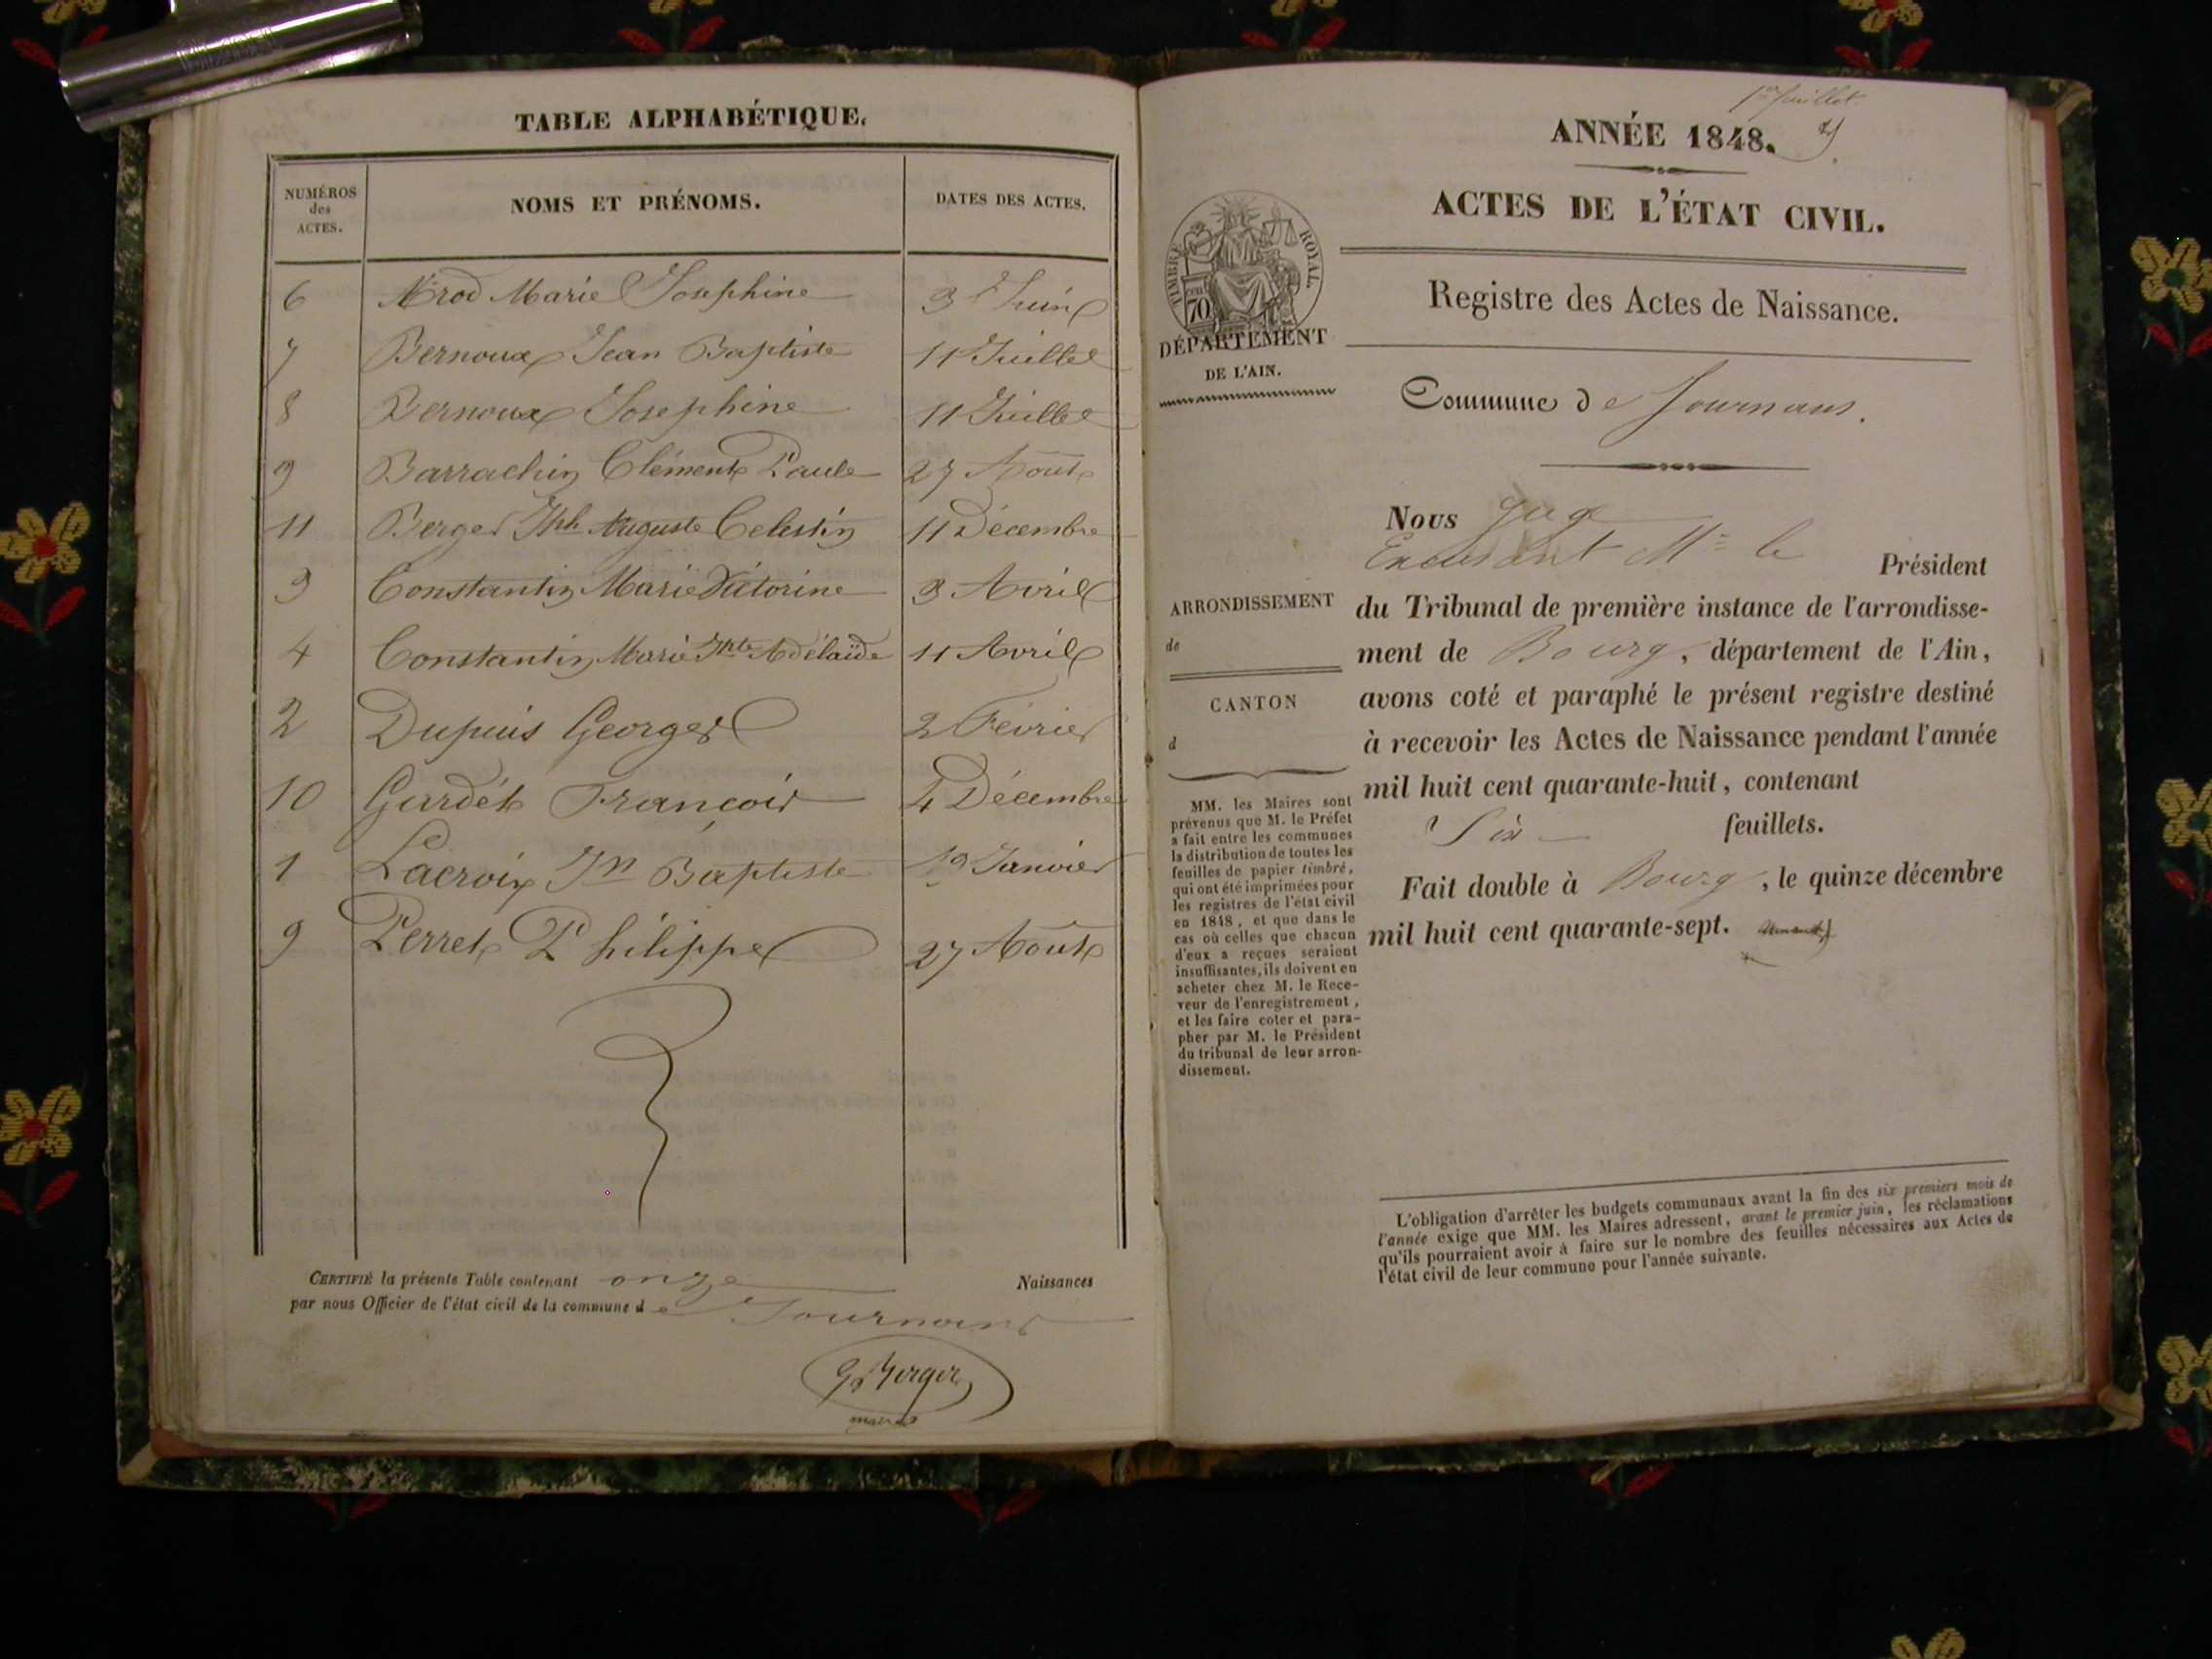 TABLE ALPHABÉTIQUE.
NUMÉROS des ACTES. NOMS ET PRÉNOMS. DATES DES ACTES.
6 Nrod Marie Josephine 3 Juin
7 Bernoux Jean Baptiste 11 Juillet
8 Bernoux Josephine 11 Juillet
9 Barrachin Clément Paule 27 Août
11 Berger Jph Auguste Celestin 11 Décembre
3 Constantin Marie Victorine 3 Avril
4 Constantin Marie Jphte Adélaïde 11 Avril
2 Dupuis Georges 2 Février
10 Gurdet François 4 Décembre
1 Lacroix Jn Baptiste 19 Janvier
9 Perret Philippe 27 Août
CERTIFIÉ la présente Table contenant onze Naissances
par nous Officier de l'état civil de la commune de Journans
Berger
maire
1er feuillet.
ANNÉE 1848.
ACTES DE L'ÉTAT CIVIL.
Registre des Actes de Naissance.
TIMBRE ROYAL
70
DÉPARTEMENT
DE L'AIN.
Commune de Journans.
Nous Juge
Mr le Président
du Tribunal de première instance de l'arrondisse-
ment de Bourg, département de l'Ain,
avons coté et paraphé le présent registre destiné
à recevoir les Actes de Naissance pendant l'année
mil huit cent quarante-huit, contenant
Six feuillets.
Fait double à Bourg, le quinze décembre
mil huit cent quarante-sept.
ARRONDISSEMENT
de
CANTON
d
MM. les Maires sont
prévenus que M. le Préfet
a fait entre les communes
la distribution de toutes les
feuilles de papier timbré,
qui ont été imprimées pour
les registres de l'état civil
en 1848, et que dans le
cas où celles que chacun
d'eux a reçues seraient
insuffisantes, ils doivent en
acheter chez M. le Rece-
veur de l'enregistrement,
et les faire coter et para-
pher par M. le Président
du tribunal de leur arron-
dissement.
L'obligation d'arrêter les budgets communaux avant la fin des six premiers mois de
l'année exige que MM. les Maires adressent, avant le premier juin, les réclamations
qu'ils pourraient avoir à faire sur le nombre des feuilles nécessaires aux Actes de
l'état civil de leur commune pour l'année suivante.